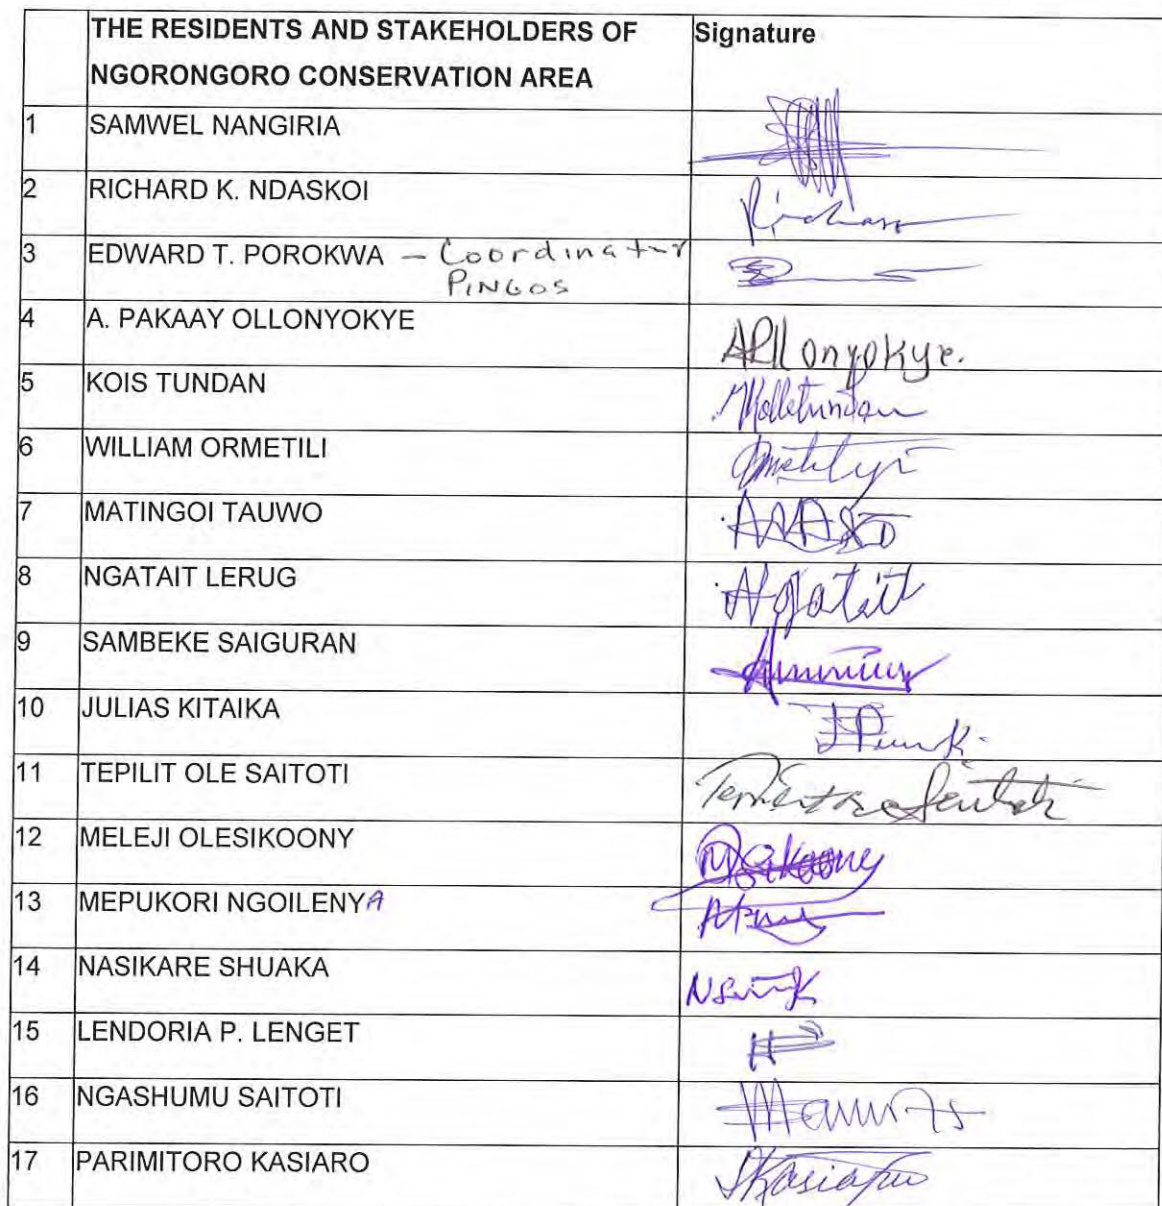 THE RESIDENTS AND STAKEHOLDERS OF Signature
NGORONGORO CONSERVATION AREA
1 SAMWEL NANGIRIA
2 RICHARD K. NDASKOI Richard
3 EDWARD T. POROKWA – Coordinator
PINGOS
4 A. PAKAAY OLLONYOKYE
APllonyokye.
5 KOIS TUNDAN
6 WILLIAM ORMETILI
7 MATINGOI TAUWO
8 NGATAIT LERUG Ngatait
9 SAMBEKE SAIGURAN
10 JULIAS KITAIKA
11 TEPILIT OLE SAITOTI
12 MELEJI OLESIKOONY
13 MEPUKORI NGOILENYA
14 NASIKARE SHUAKA
15 LENDORIA P. LENGET
16 NGASHUMU SAITOTI
17 PARIMITORO KASIARO